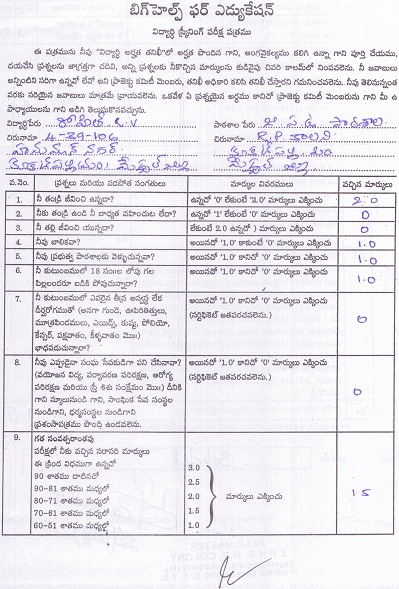 బిగ్‌హెల్ప్ ఫర్ ఎడ్యుకేషన్
విద్యార్థి స్క్రీనింగ్ పరీక్ష పత్రము
ఈ పత్రమును నీవు "విద్యార్థి అర్హత తనిఖీ"లో అర్హత పొందిన గాని, అంగవైకల్యము కలిగి ఉన్నా గాని పూర్తి చేయుము,
దయచేసి ప్రశ్నలను జాగ్రత్తగా చదివి, అన్ని ప్రశ్నలకు నీకొచ్చిన మార్కులను కుడివైపు చివరి కాలమ్‌లో నింపవలెను. నీ జవాబులు
అన్నింటిని సరిగా ఉన్నవో లేవో అని ప్రాజెక్టు కమిటీ మెంబరు, తనిఖీ అధికారి కలిసి తనిఖీ చేస్తారని గమనించవలెను. నీవు తెలిసినన్నంత
వరకు సరియైన జవాబులు మాత్రమే వ్రాయవలెను. ఒకవేళ ఏ ప్రశ్నయైన అర్థము కానిదో ప్రాజెక్టు కమిటీ మెంబరును గాని మీ ఉ
పాధ్యాయులను గాని అడిగి తెలుపుకొనవచ్చును.
విద్యార్థిపేరు రోహిత్. R.V పాఠశాల పేరు జి.ప.ఉ పాఠశాల
చిరునామా 4-29-106 చిరునామా R.P కాలని
హనుమాన్ నగర్
వ.నెం. ప్రశ్నలు మరియు పదపోత సంగతులు మార్కుల వివరములు వచ్చిన మార్కులు
1. నీ తండ్రి జీవించి ఉన్నడా? ఉన్నచో '0' లేకుంటే '2.0' మార్కులు ఎక్కించు 2.0
2. నీకు తండ్రి ఉండి నీ బాధ్యత వహించుట లేదా? ఉన్నచో '1' లేకుంటే '0' మార్కులు ఎక్కించు 0
3. నీ తల్లి జీవించి యున్నదా? లేకుంటే 2.0 ఉన్నచో ) మార్కులు ఎక్కించు 0
4. నీవు బాలికవా? అయినచో '1.0' కాకుంటే '0' మార్కులు ఎక్కించు 1.0
5. నీవు ప్రభుత్వ పాఠశాలకు వెళ్ళుచున్నవా? అయినచో '1.0' కానిచో '0' మార్కులు ఎక్కించు 1.0
6. నీ కుటుంబములో 18 సంIIల లోపు గల
పిల్లలందరూ బడికి పోవుచున్నారా? అయినచో '1.0' కానిచో '0' మార్కులు ఎక్కించు 1.0
7. నీ కుటుంబములో ఎవరైన తీవ్ర అస్వస్థ లేక
దీర్ఘరోగముతో (అనగా గుండె, ఊపిరితిత్తులు,
మూత్రపిండములు, ఎయిడ్స్, కుష్ఠు, పోలియో,
కేన్సర్, పక్షవాతం, కీళ్ళవాతం మొII)
భాధపడుచున్నారా? అయినచో '1.0' కానిచో '0' మార్కులు ఎక్కించు
(సర్టిఫికెట్ జతపరచవలెను.) 0
8. నీవు ఎప్పుడైనా సంఘ సేవకుడిగా పని చేసినావా?
(వయోజన విద్య, పర్యావరణ పరిరక్షణ, ఆరోగ్య
పరిరక్షణ మరియు స్త్రీ శిశు సంక్షేమం మొII) దీనికి
గాని స్కూలునుండి గాని, సాంఘిక సేవ సంస్థల
నుండిగాని, ధర్మసంస్థల నుండిగాని
ప్రశంసాపత్రము పొంది ఉండవలెను. అయినచో '1.0' కానిచో '0' మార్కులు ఎక్కించు
(సర్టిఫికెట్ జతపరచవలెను.) 0
9. గత సంవత్సరాంతపు
పరీక్షలో నీకు వచ్చిన సరాసరి మార్కులు
ఈ క్రింద విధముగా ఉన్నచో
90 శాతము దాటినచో 3.0
90-81 శాతము మధ్యలో 2.5
80-71 శాతము మధ్యలో 2.0 మార్కులు ఎక్కించు 1.5
70-61 శాతము మధ్యలో 1.5
60-51 శాతము మధ్యలో 1.0